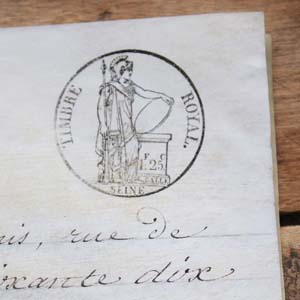 TIMBRE ROYAL.
F. C
1.25.
SEINE
is, rue de
ixante dix